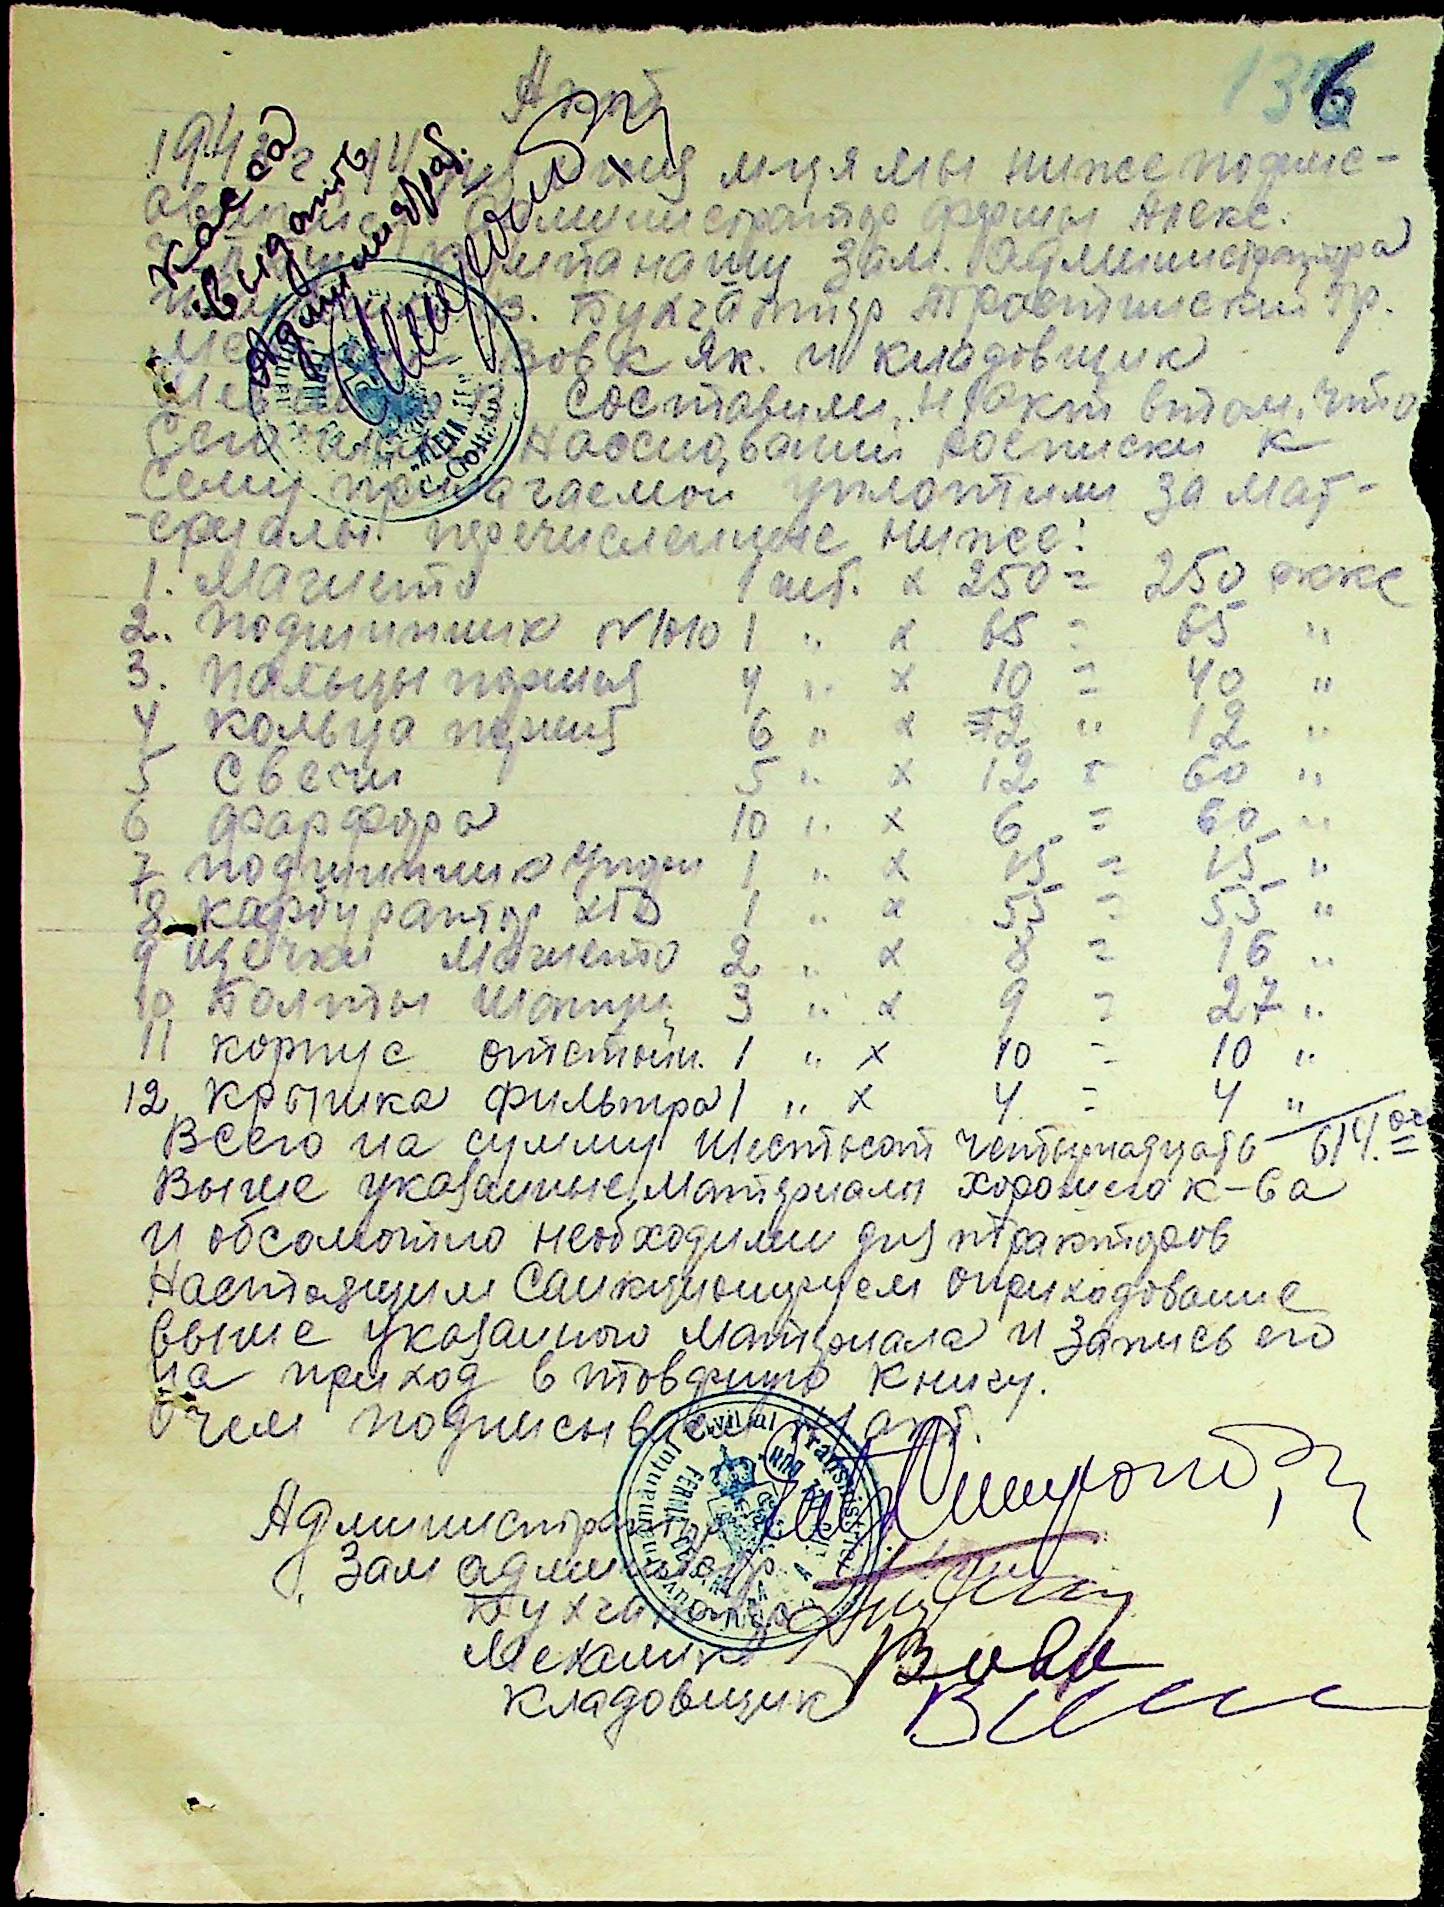 136
Акт
Касса
выдать
Администрат.
1943 г 14 дня мця мы ниже подпис-
авшиеся Администратор фермы Алекс.
Зам. Администратора
Бухгалтер Тростинский Гр.
Вовк Як. и кладовщик
составили н/акт в том, что
На основании росписки к
сему прилагаемой уплотили за мат-
-ериалы перечисленные ниже:
1. Магнето 1 шт. х 250 = 250 ркке
2. подшипник №1010 1 " х 65 = 65 "
3. Пальцы поршня 4 " х 10 = 40 "
4 Кольца поршня 6 " х 2 " 12 "
5 Свечи 5 " х 12 = 60 "
6 Фарфора 10 " х 6 = 60 "
7 подшипник 1 " х 15 = 15 "
8 карбуратор ХТЗ 1 " х 55 = 55 "
9 щечки магнето 2 " х 8 = 16 "
10 Болты шатун 3 " х 9 = 27 "
11 корпус отстойн. 1 " х 10 = 10 "
12 Крышка фильтра 1 " х 4 = 4 "
Всего на сумму Шестьсот четырнадцать 614.00
Выше указанные материалы хорошего к-ва
и обсолютно необходими для тракторов
Настоящим Санкционируем оприходование
выше указанного материала и запись его
на приход в товарную книгу.
О чем подписываем н/акт.
Guvernământul Civil al Transnistriei
FERMA
Администратор
Зам админстр.
Бухгалтер
Механик Вовк
Кладовщик